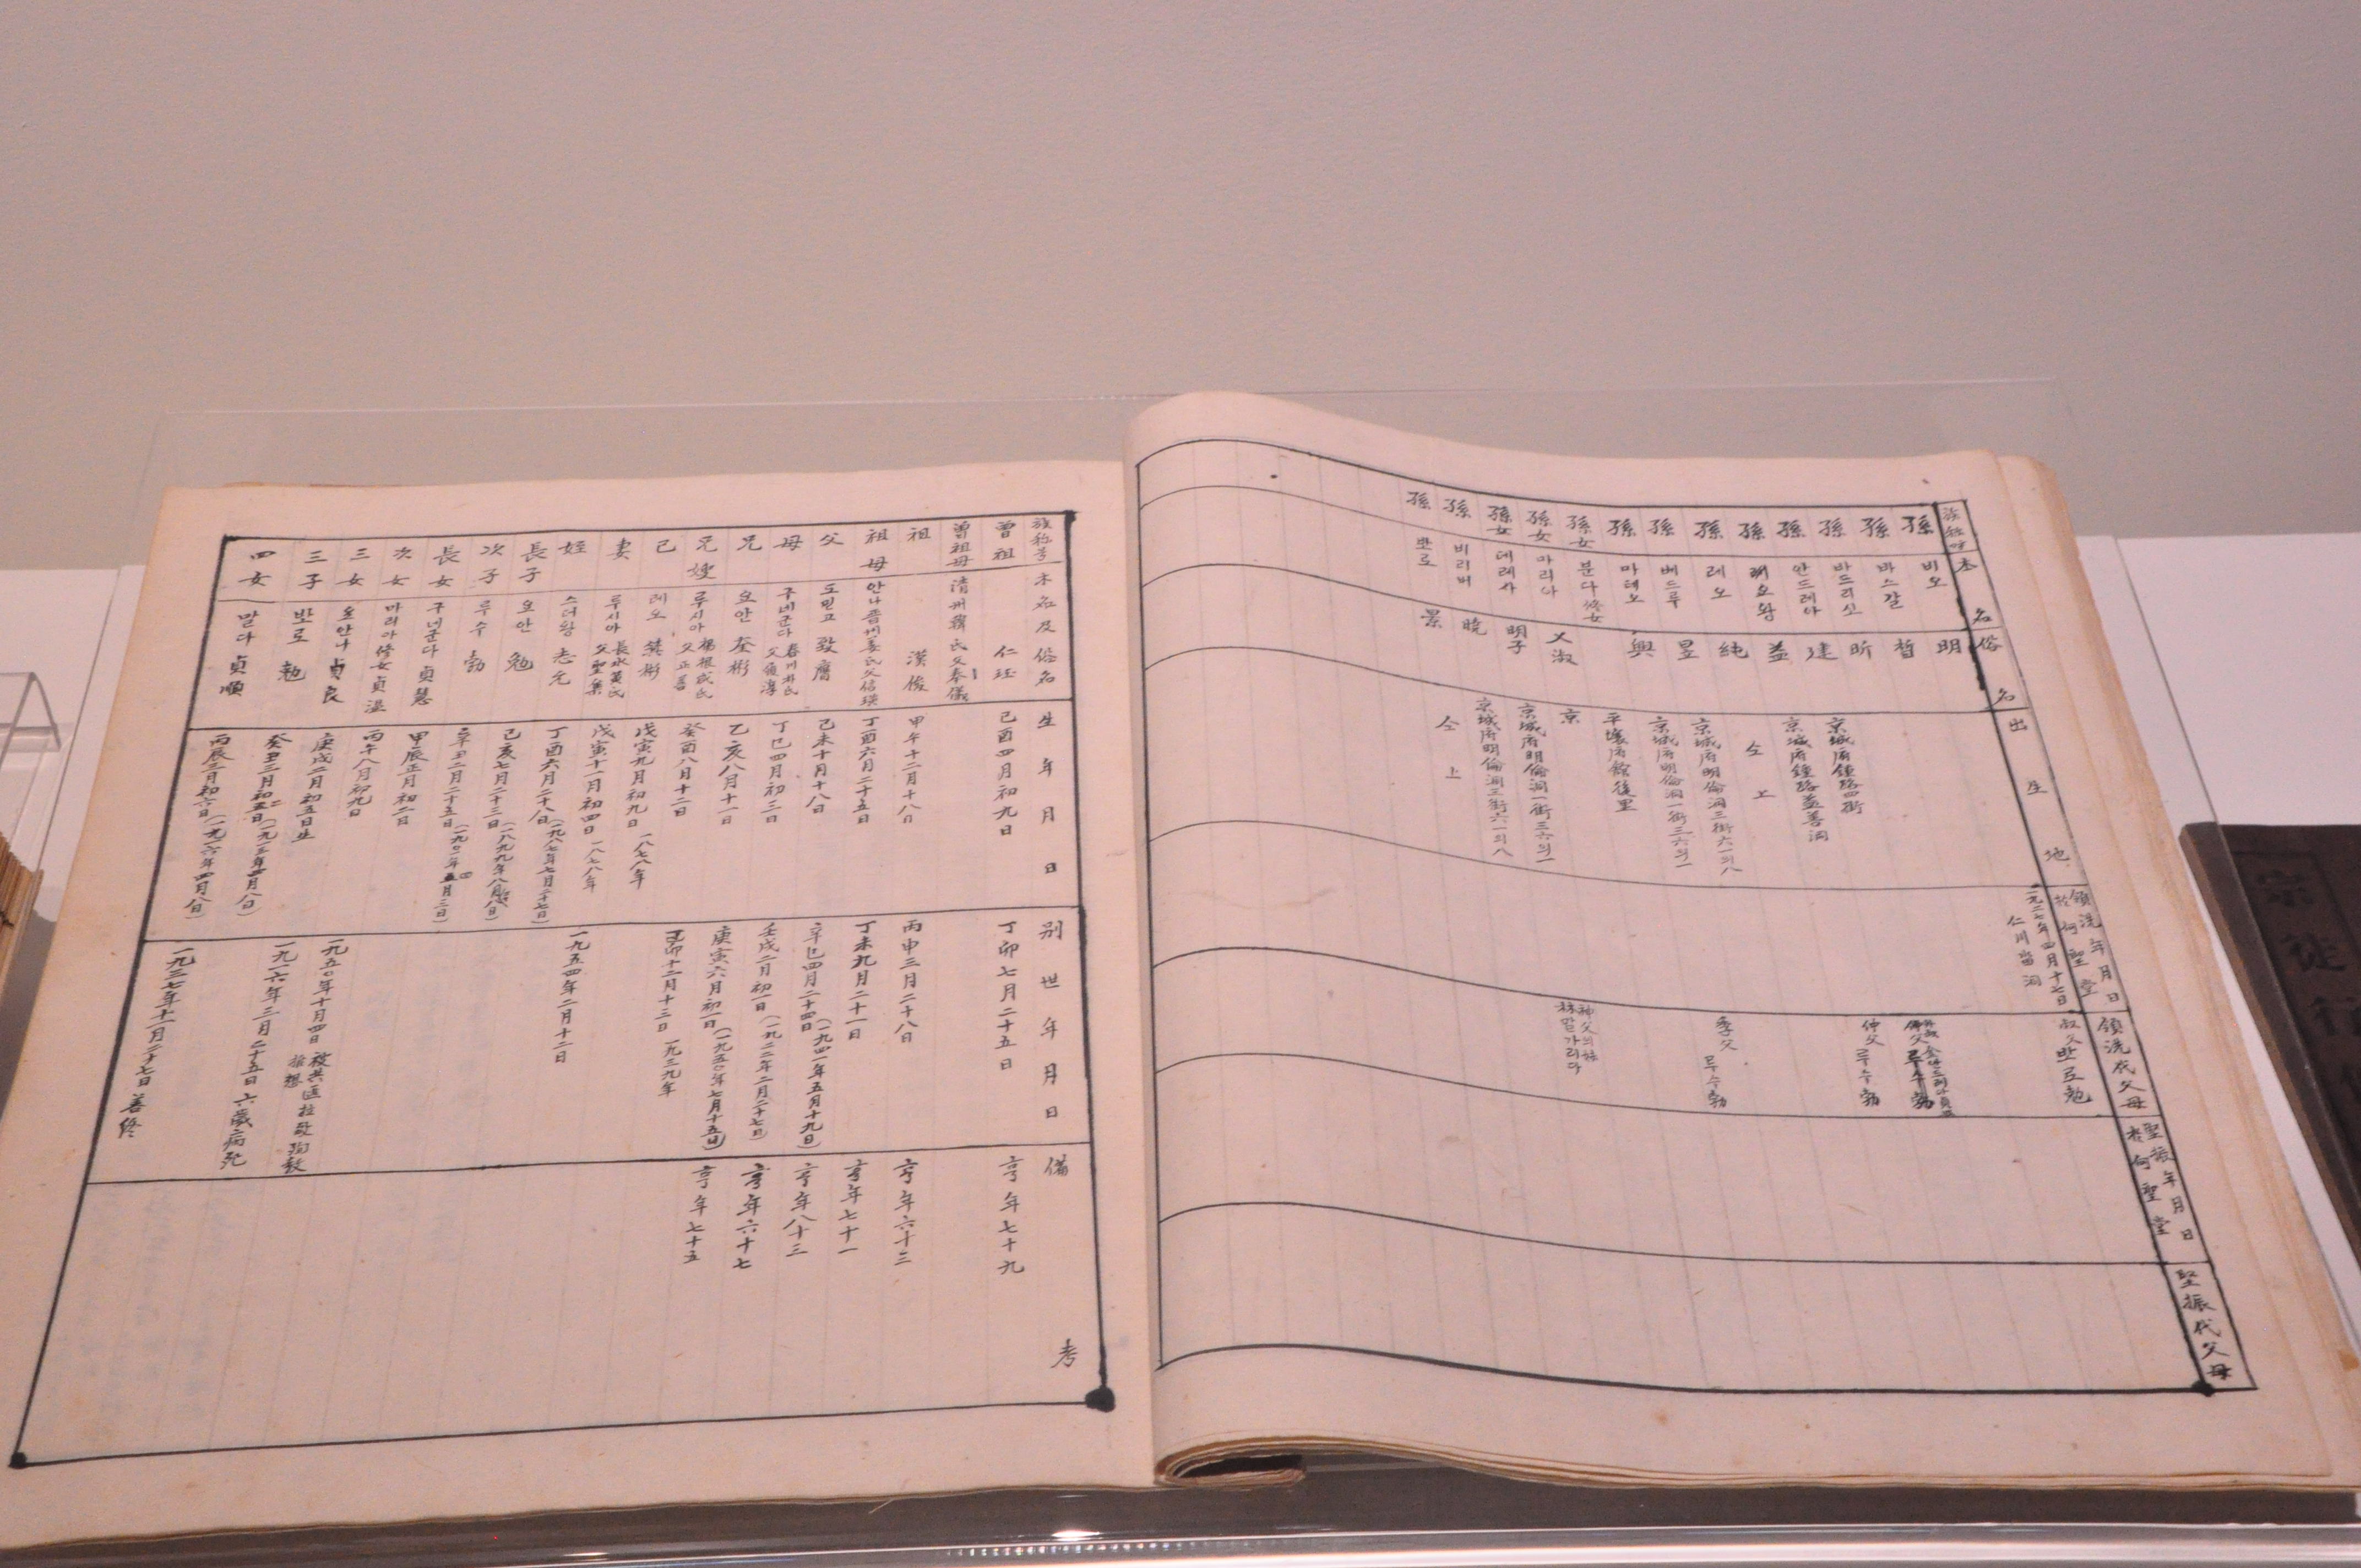 族称号
本名
俗名
出生地
領洗年月日
於何聖堂
領洗代父母
聖振年月日
於何聖堂
堅振代父母
孫 비오 明
一九二七年四月十七日
仁川畓洞
叔父 반로 勉
孫 바스갈 晳
孫 바드리신 昕 京城府鍾路四街
仲父 루수 勃
孫 안드레아 建 京城府鍾路益善洞
孫 요왕 益 仝上
孫 레오 純 京城府明倫洞三街六一의八
季父 루수 勃
孫 베드루 昱 京城府明倫洞一街三六의一
孫 마테오 興 平壤府館後里
孫女 분다 修女 淑 京
孫女 마리아 明子 京城府明倫洞一街三六의一
孫女 데레사 京城府明倫洞三街六一의八
孫 비리버 曉 仝上
孫 뽀로 景
族称号
本名及俗名
生年月日
別世年月日
備考
曾祖 仁珏 己酉四月初九日 丁卯七月二十五日 享年七十九
曾祖母 清州韓氏父奉儀
祖 漢俊 甲午十二月十八日 丙申三月二十八日 享年六十三
祖母 안나 晋州姜氏父信瑛 丁酉六月二十五日 丁未九月二十一日 享年七十一
父 도민고 致膺 己未十月十八日 辛巳四月二十四日(一九四一年五月十九日) 享年八十三
母 구네군다 春川朴氏 丁巳四月初三日 壬戌二月初一日(一九二二年二月二十七日) 享年六十七
兄 요안 奎彬 乙亥八月十一日 庚寅六月初一日(一九五〇年七月十五日) 享年七十五
兄嫂 루시아 楊根咸氏父正善 癸酉八月十二日 己卯十二月十三日 一九三九年
己 레오 箕彬 戊寅九月初九日 一八七八年
妻 루시아 長水黃氏父聖集 戊寅十一月初四日 一八七八年 一九五四年二月十二日
姪 스더왕 志元 丁酉六月二十八日(一八九七年七月二十七日)
長子 요안 勉 己亥七月二十三日
次子 루수 勃 辛丑二月二十五日
長女 구네군다 貞慧 甲辰正月初二日
次女 마리아 修女 貞温 丙午八月初九日
三女 요안나 貞良 庚戌二月初五日生
三子 반로 勉 癸丑三月初二日 一九一六年三月二十五日 六歲病死
四女 말다 貞順 丙辰三月初六日(一九一六年四月八日) 一九三七年十一月二十七日 善終